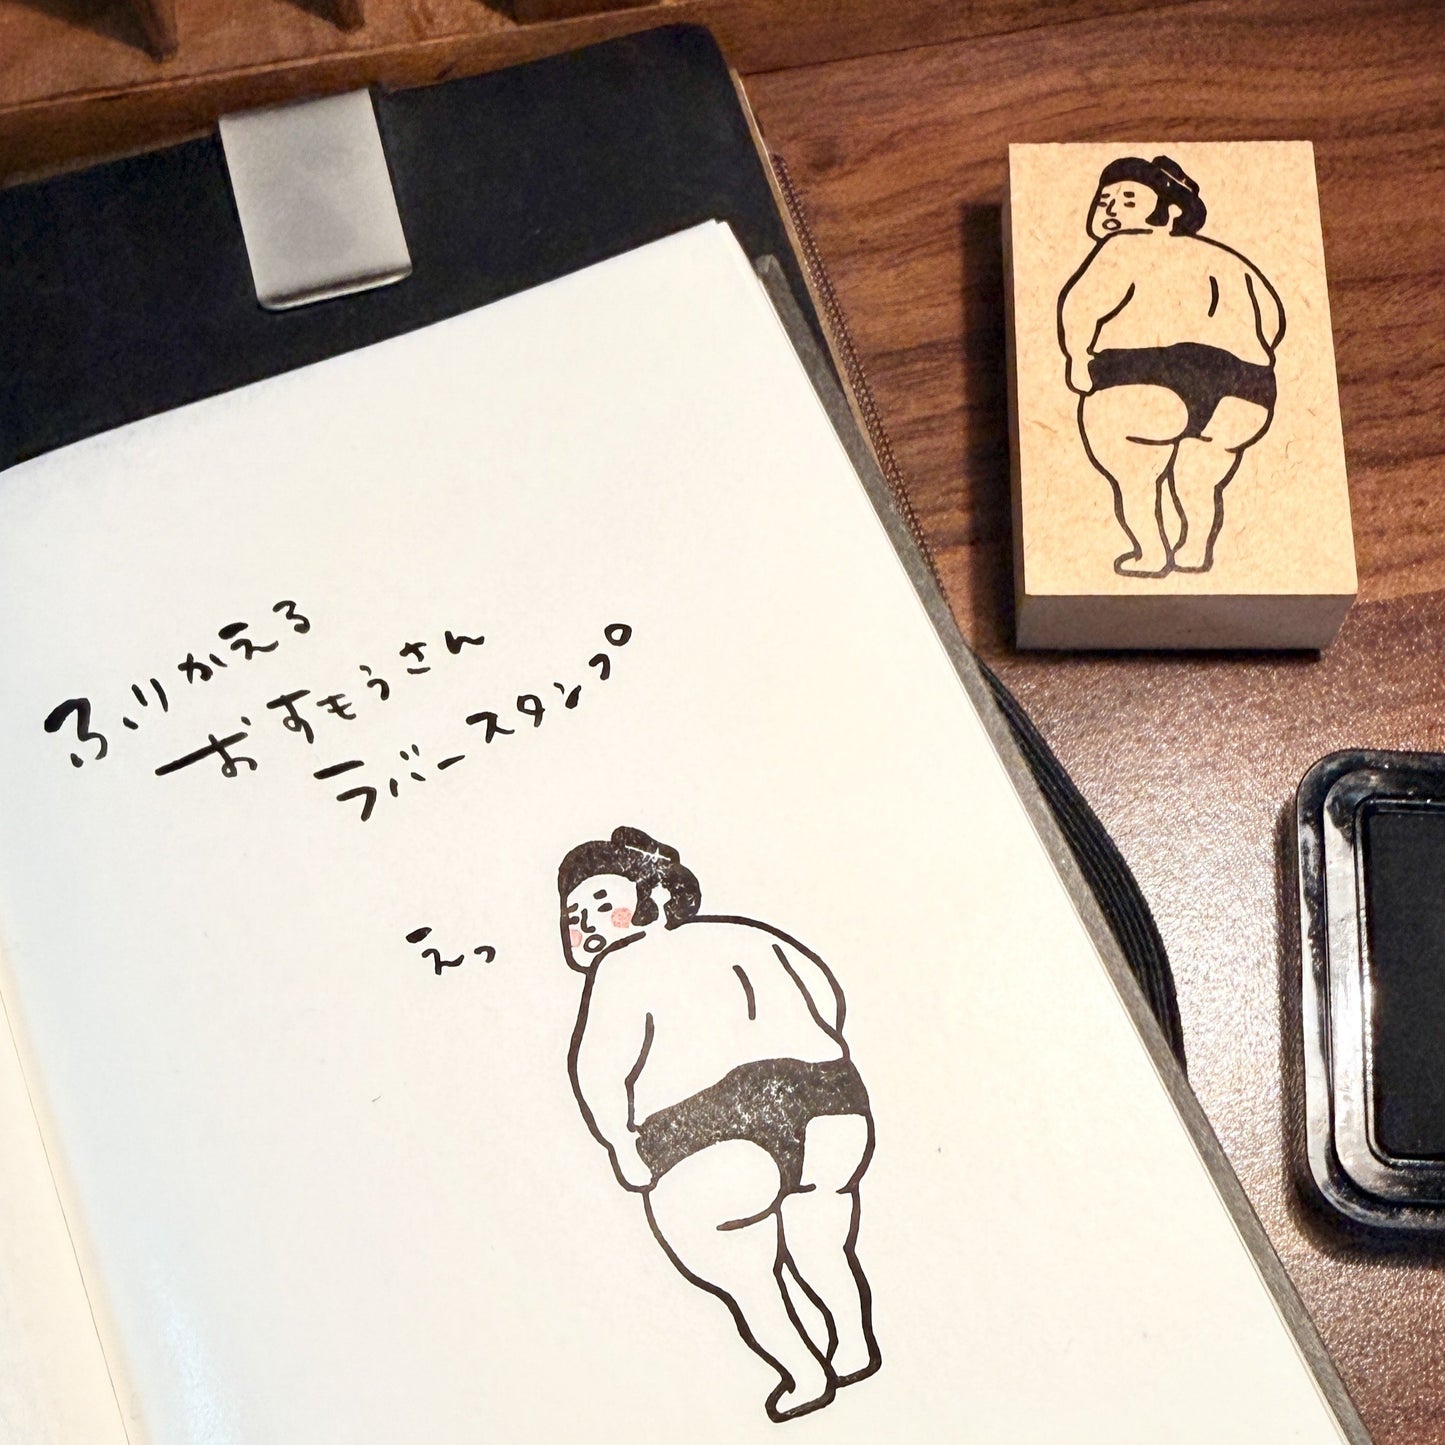 ふりかえる
おすもうさん
ラバースタンプ
えっ